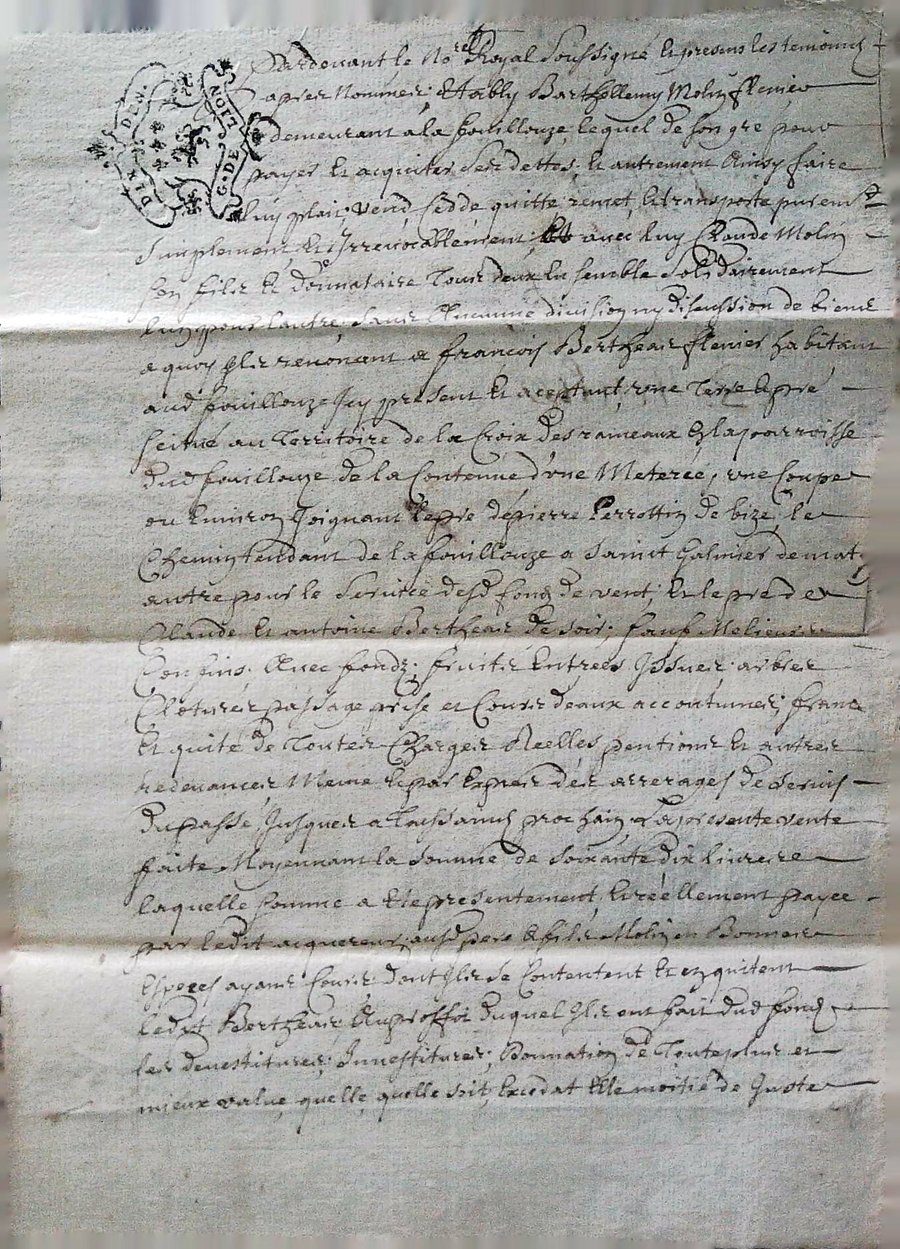 G. DE LION
DIX D. N.
Pardevant le No.re Royal Soussigné et presens les temoins
apres Nommez, Estably Barthellemy Molin
demeurant a la fouillouze, lequel de son gre pour
payer et acquiter ses dettes, et autrement Ainsy faire
luy plait, vend, Cedde, quitte, remet, et transporte purem.t
Simplement, et Irrevocablement, avec luy Claude Molin
son fils et donnataire Tous deux Ensemble Solidairement
lun pour lautre, sans Aucunne division ny discussion de biens
a quoy Ils renoncent a francois Berthear habitant
aud fouillouze Icy present et aceptant, une Terre et pré
scitué au Territoire de la Croix des rameaux Et la parroisse
dud fouillouze de la Contenue d'une Meteree, une Coupe
ou Environ Joignant le pré de pierre Perrottin de bize, le
Chemin tendant de la fouillouze a Sainct Galmier de mat,
autre pour le Service desd fond de vent, Et le pré de
Claude et antoine Berthear de Soir, Sauf Melieurs
Confins, Avec fondz, fruits Entrees Issues, arbres
Clotures passage prise et Cours deaux accoutumez, franc
Et quité de Toutes Charges Reelles pentions et autres
redevances, Meme Expres des arrerages de Servis
du passé Jusques a Toussaincts prochain, La presente vente
faite Moyennant la Somme de Soixante dix livres
laquelle somme a Eté presentement, et réellement payee
par ledit acquereur, ausd pere & fils Molin en Bonnes
Especes ayant Cours, dont Ils se Contentent et en quitent
ledit Berthear, Au proffit duquel Ils ont fait dud fond
les devestitures, Investitures, Donnation de Toute plus et
mieux value, quelle quelle soit, Excedat Elle moitié de Juste